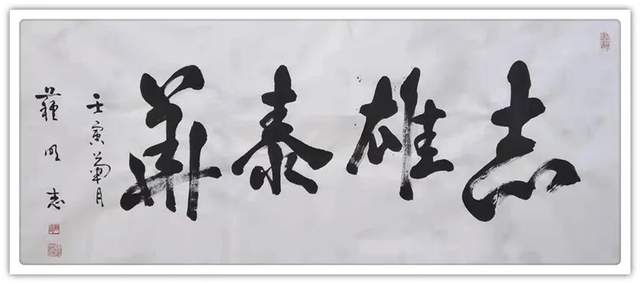 志雄泰華
壬寅菊月
明志